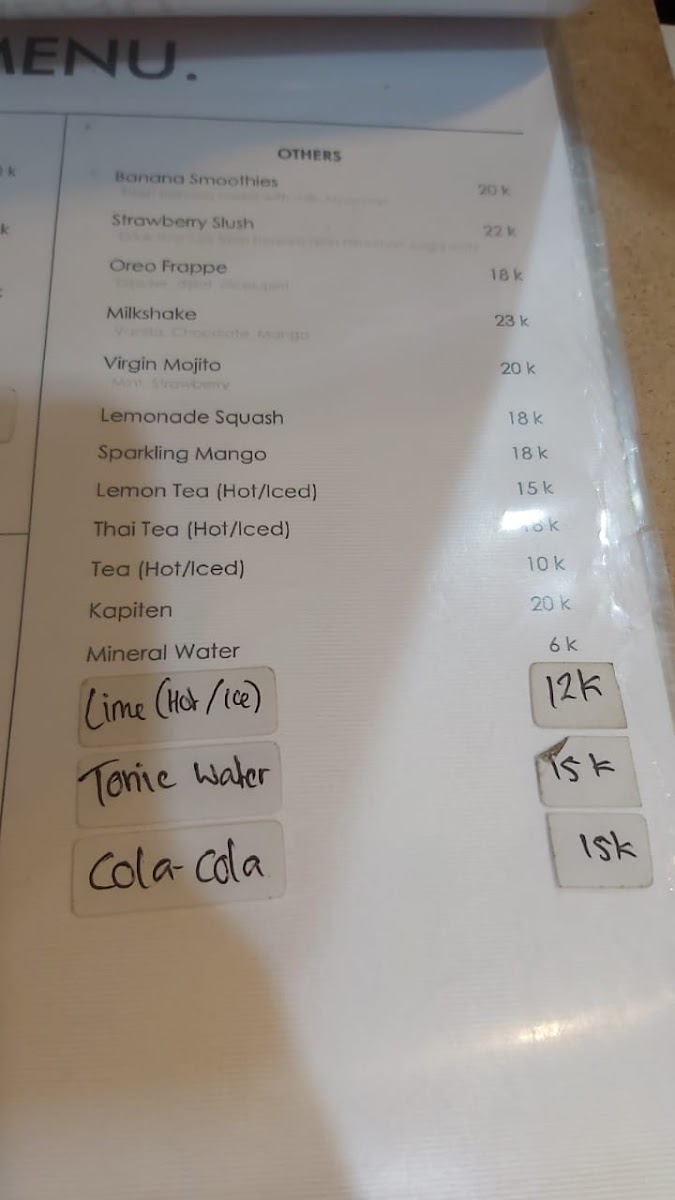 MENU.
k
k
OTHERS
Banana Smoothies 20 k
Strawberry Slush 22 k
Oreo Frappe 18 k
Milkshake 23 k
Vanila, Chocolate, Mango
Virgin Mojito 20 k
Mint, Strawberry
Lemonade Squash 18 k
Sparkling Mango 18 k
Lemon Tea (Hot/Iced) 15 k
Thai Tea (Hot/Iced) k
Tea (Hot/Iced) 10 k
Kapiten 20 k
Mineral Water 6 k
Lime (Hot/ice) 12k
Tonic Water 15k
Cola-Cola 15k